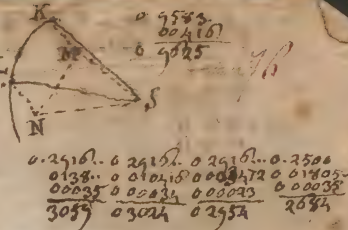 K
0 9583
00416
M
0 9625
L
S
N
0.2916.. 0 2916.. 0 2916.. 0.2500
0138.. 0 010416 003472 0 01805
00035 0 00034 0 00023 0 00035
3059 0 3024 0 2954 2684